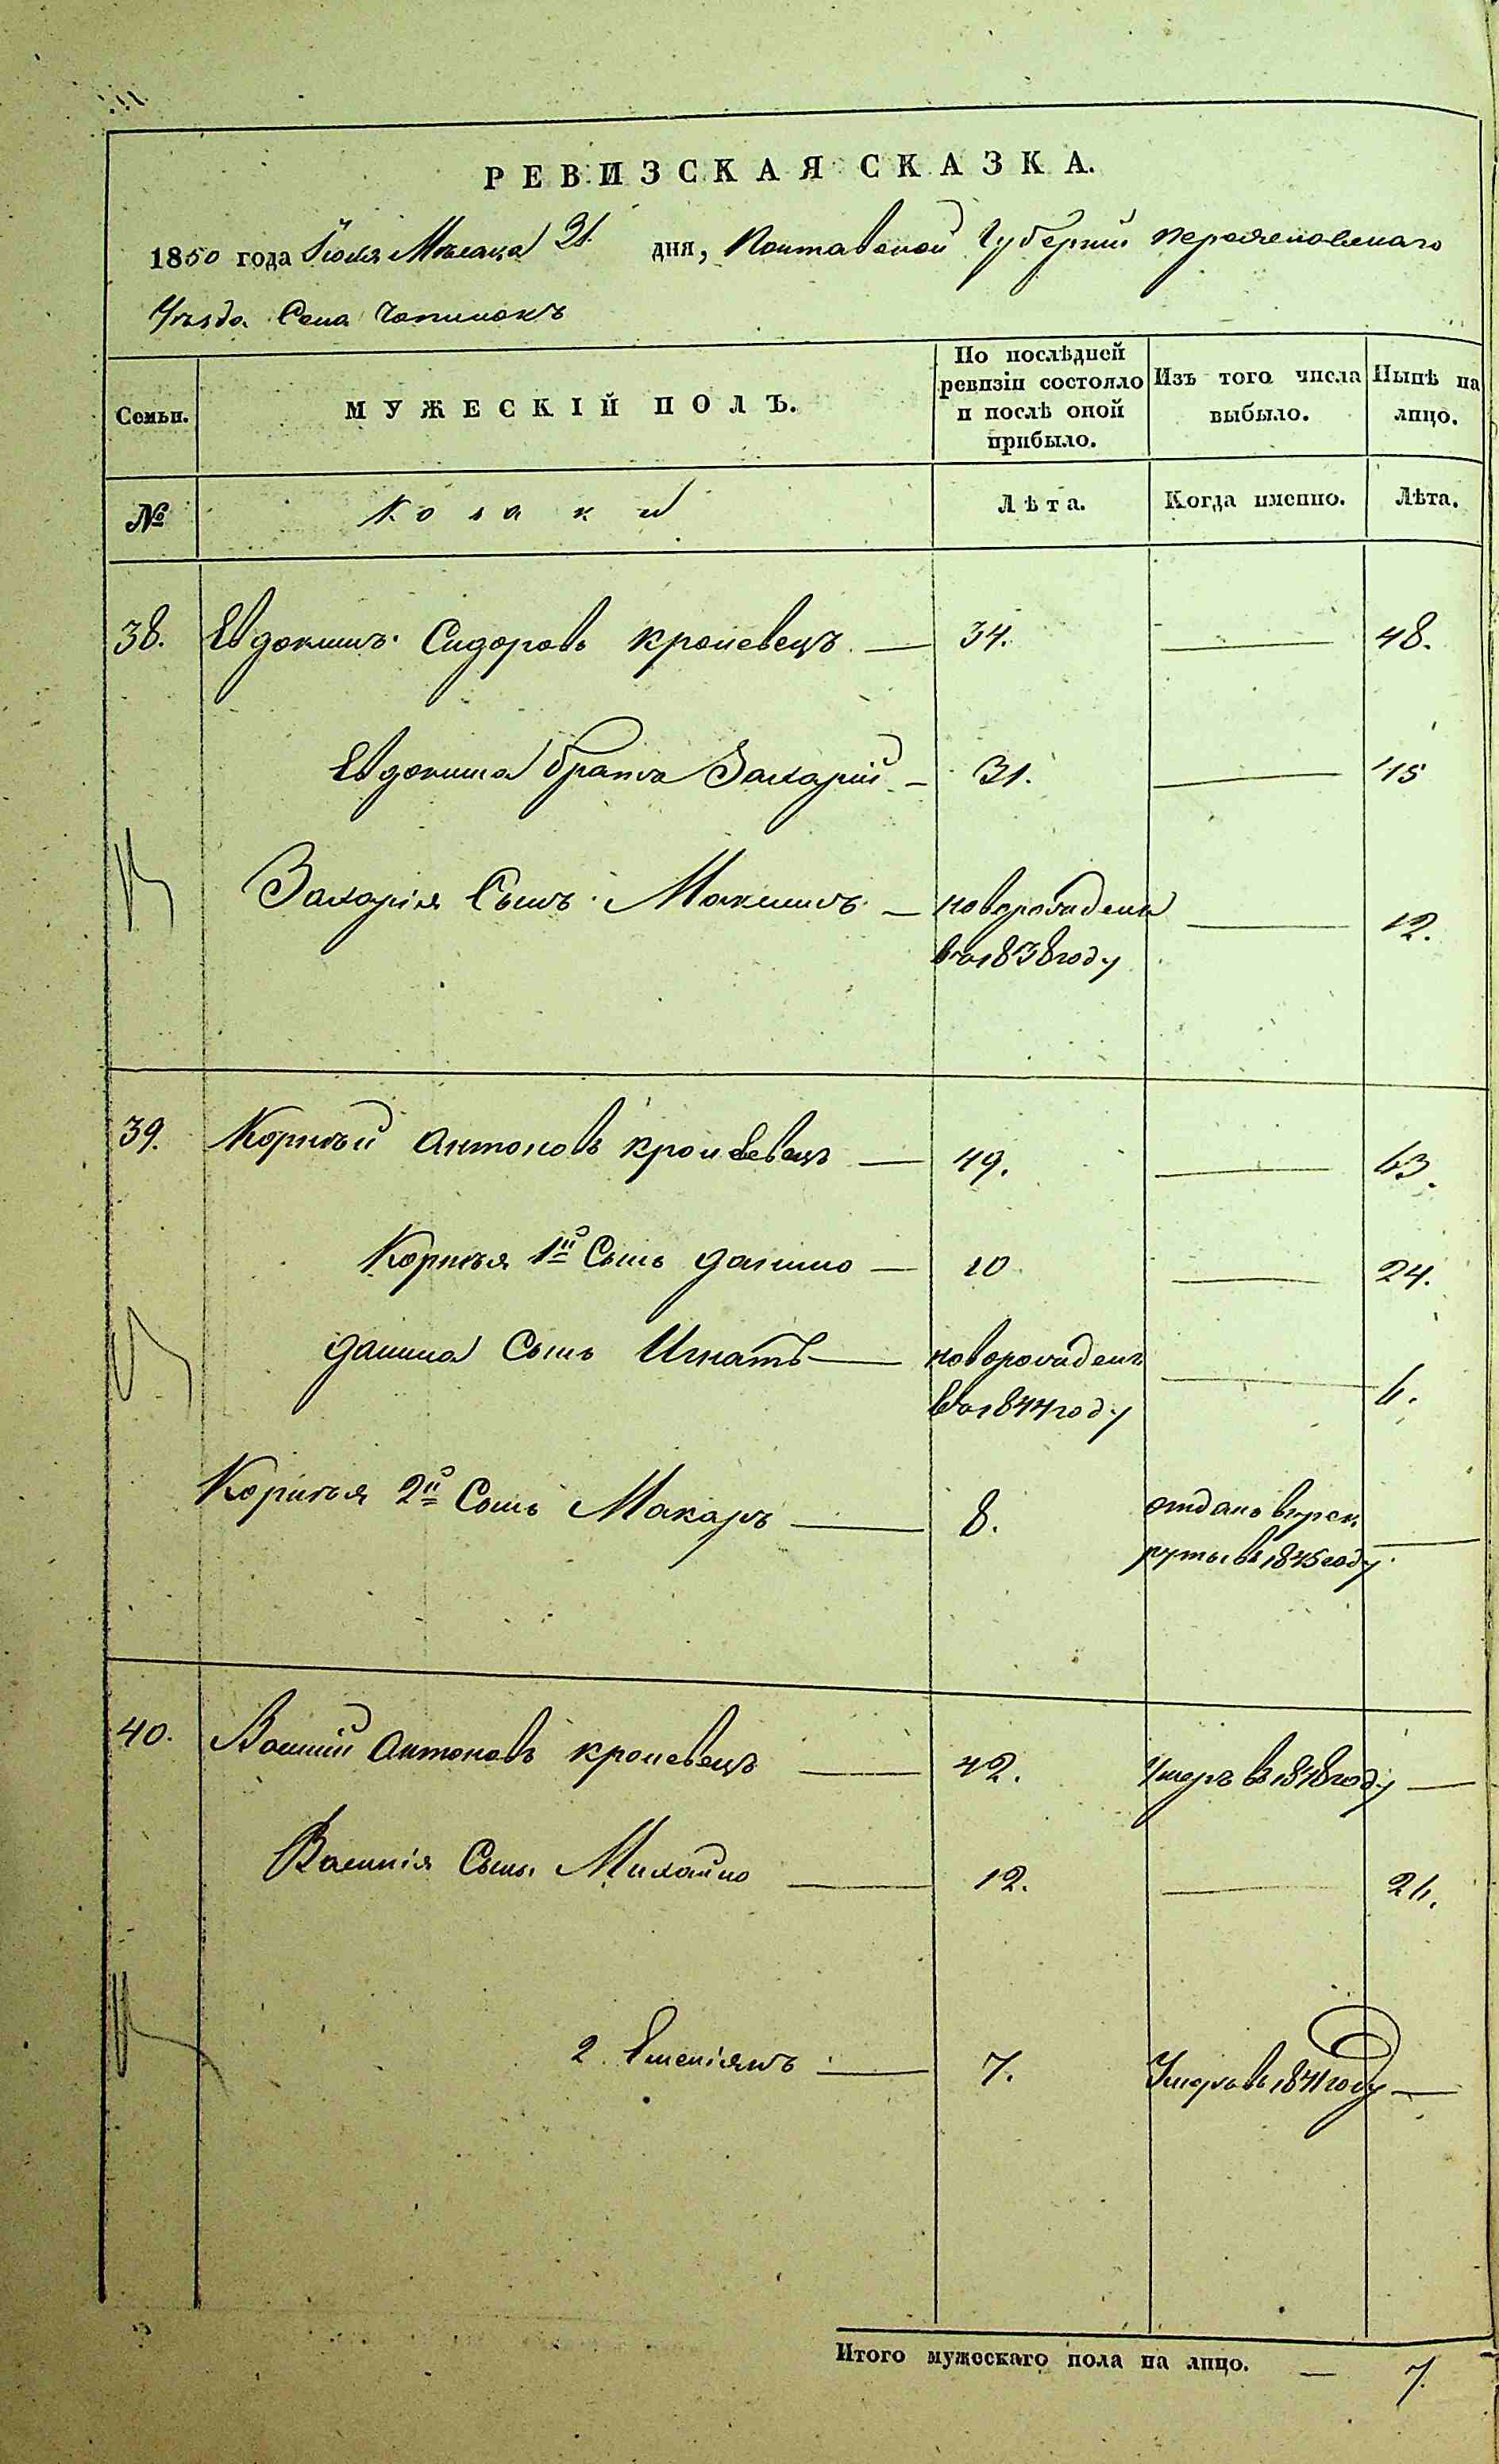 РЕВИЗСКАЯ СКАЗКА.
1850 года Июля Месяца 31. дня, Полтавской Губернии Переяславскаго
Уезда Села Чопилокъ
Семьи. МУЖЕСКІЙ ПОЛЪ. По послѣдней ревизіи состояло и послѣ оной прибыло. Изъ того числа выбыло. Нынѣ на лицо.
№ Козаки Лѣта. Когда именно. Лѣта.
38. Евдокимъ Сидоровъ Кропевецъ — 34. — 48.
Евдокима братъ Захарій — 31. — 45
Захарія Сынъ Максимъ — новорожденъ — 12.
въ 1838 году
39. Корнѣй Антоновъ Кропевецъ — 49. — 63.
Корнѣя 1й Сынъ Данило — 10 — 24.
Данила Сынъ Игнатъ — новорожденъ — 6.
въ 1844 году
Корнѣя 2й Сынъ Макаръ — 8. отданъ въ рек
руты въ 1845 году —
40. Василій Антоновъ Кропевецъ — 42. Умеръ въ 1848 году —
Василія Сынъ Михайло — 12. — 26.
2. Емеліянъ — 7. Умеръ въ 1841 году —
Итого мужескаго пола на лицо. — 7.